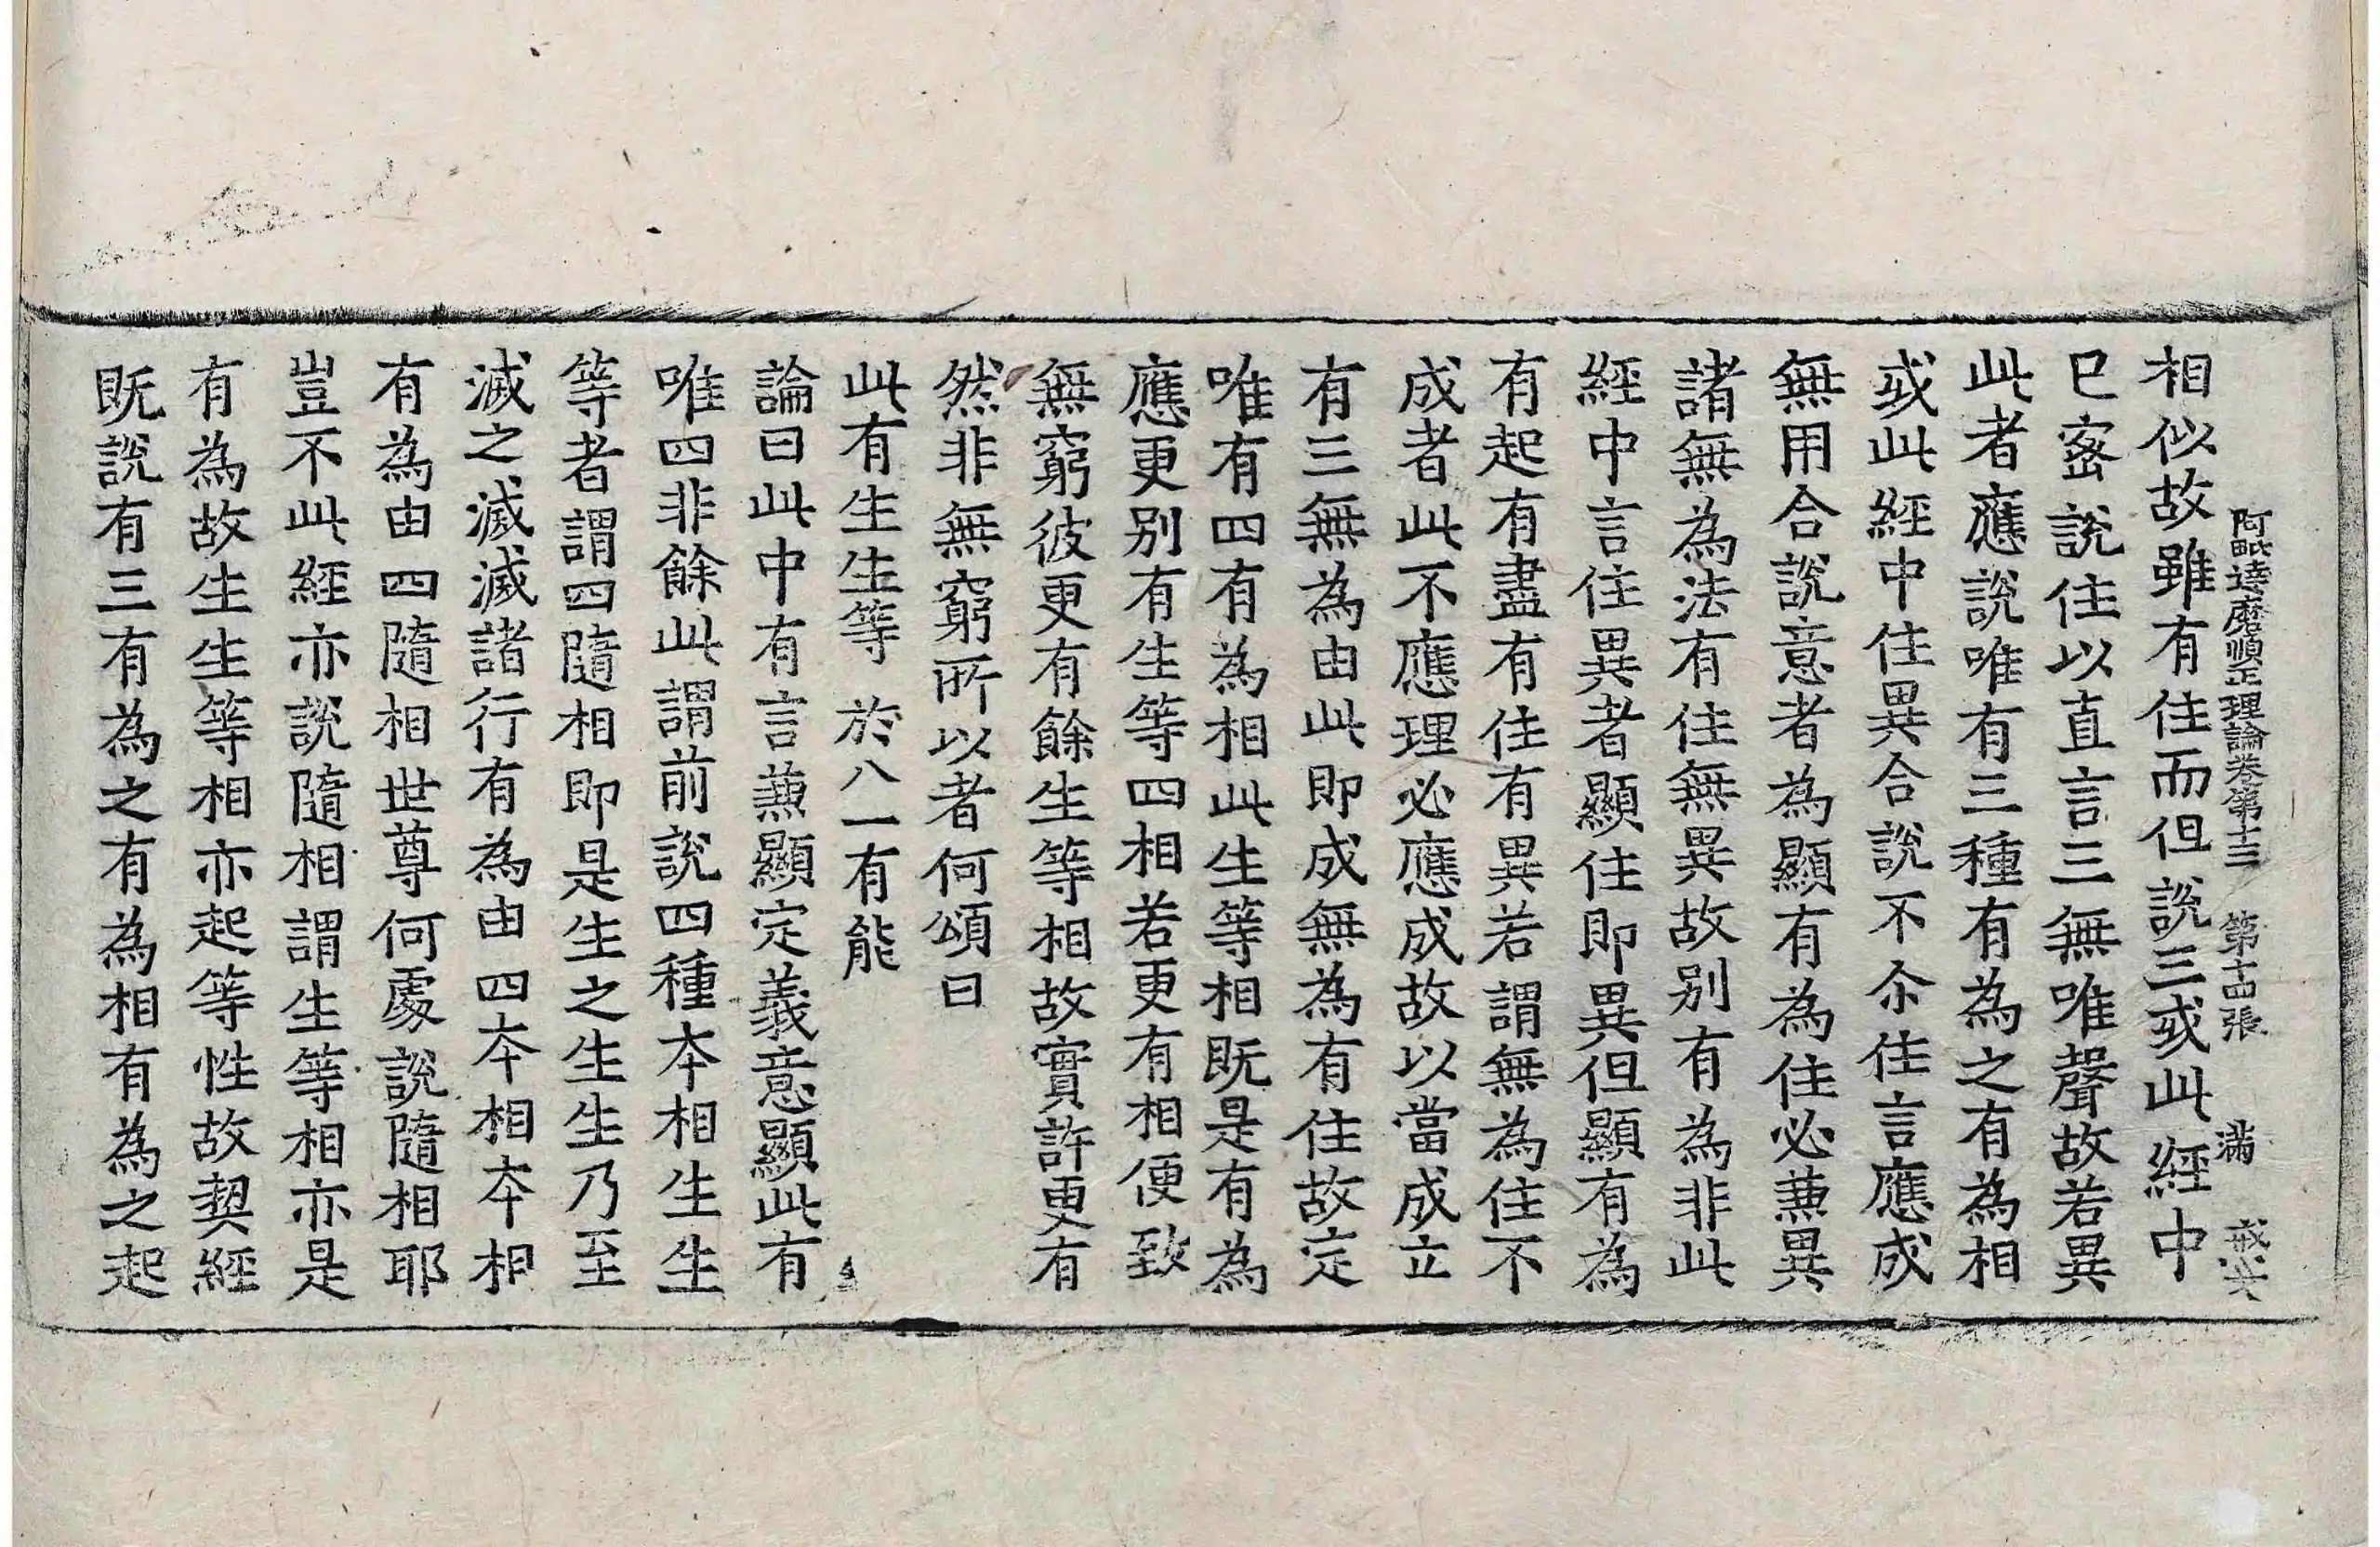 阿毗達磨順正理論卷第十三 第十四張 滿 戒六
相似故雖有住而但說三或此經中
已密說住以直言三無唯聲故若異
此者應說唯有三種有為之有為相
或此經中住異合說不尒住言應成
無用合說意者為顯有為住必蕪異
諸無為法有住無異故別有為非此
經中言住異者顯住即異但顯有為
有起有盡有住有異若謂無為住不
成者此不應理必應成故以當成立
有三無為由此即成無為有住故定
唯有四有為相此生等相既是有為
應更別有生等四相若更有相便致
無窮彼更有餘生等相故實許更有
然非無窮所以者何頌曰
此有生生等 於八一有能
論曰此中有言蕪顯定義意顯此有
唯四非餘此謂前說四種本相生生
等者謂四隨相即是生之生生乃至
滅之滅滅諸行有為由四本相本相
有為由四隨相世尊何處說隨相耶
豈不此經亦說隨相謂生等相亦是
有為故生生等相亦起等性故契經
既說有三有為之有為相有為之起